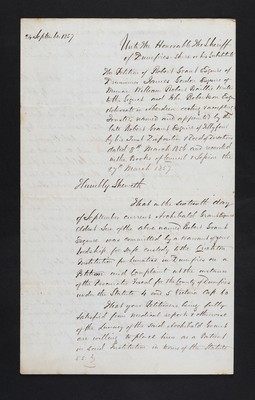 24 September 1857
Unto The Honorable The Sheriff
of Dumfries-shire or his Substitute
The Petition of Robert Grant Esquire of
James Taylor Esquire of
William Robert Baillie Writer
to the Signet and John Robertson Esqr
Advocate in Aberdeen
Trustees named and appointed by the
late Robert Grant Esquire of Tillyfour
by his Trust Disposition & Deed
dated 9th March 1856 and recorded
in the Books of Council & Session the
27th March 1857
Humbly Sheweth
That on the sixteenth day
of September current Archibald Grant Esquire
eldest Son of the above named Robert Grant
Esquire was committed by a warrant of your
Lordship for safe custody to the Crichton
Institution for Lunatics in Dumfries on a
Petition and Complaint at the instance
of the Procurator Fiscal for the County of Dumfries
under the Statute 4 and 5 Victoria Cap 60
That your Petitioners being fully
satisfied from medical reports & otherwise
of the Lunacy of the said Archibald Grant
are willing to place him as a Patient
in said Institution in terms of the Statute
55